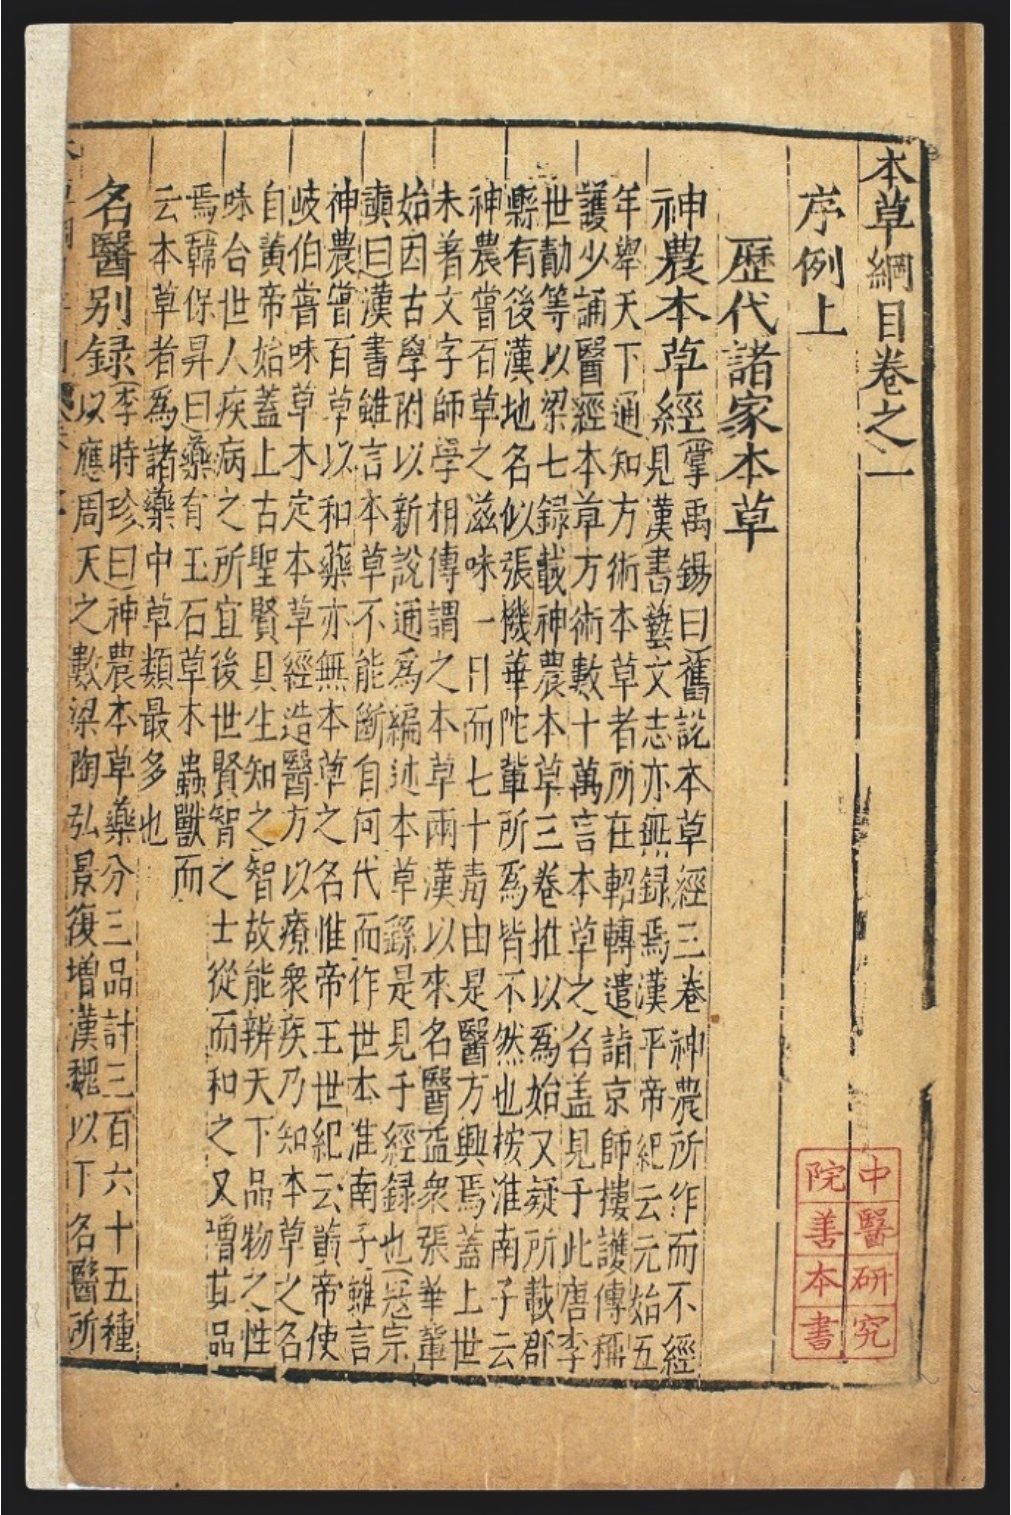 本草綱目卷之一
序例上
歷代諸家本草
神農本草經(掌禹錫曰)舊説本草經三卷神農所作而不經
見漢書藝文志亦無録焉漢平帝紀云元始五
年舉天下通知方術本草者所在軺轉遣詣京師摟護傳稱
護少誦醫經本草方術數十萬言本草之名盖見于此唐李
世勣等以梁七録載神農本草三卷推以為始又疑所載郡
縣有後漢地名似張機華陀輩所為皆不然也按淮南子云
神農嘗百草之滋味一日而七十毒由是醫方興焉蓋上世
未著文字師學相傳謂之本草兩漢以來名醫益衆張華輩
始因古學附以新說通為編述本草繇是見于經録也(冦宗
奭曰)漢書雖言本草不能斷自何代而作世本淮南子雖言
神農嘗百草以和藥亦無本草之名惟帝王世紀云黄帝使
岐伯嘗味草木定本草經造醫方以療衆疾乃知本草之名
自黄帝始蓋上古聖賢具生知之智故能辨天下品物之性
味台世人疾病之所宜後世賢智之士從而和之又增其品
焉(韓保昇曰)藥有玉石草木蟲獸而
云本草者為諸藥中草類最多也
名醫别録(李時珍曰)神農本草藥分三品計三百六十五種
以應周天之數梁陶弘景復增漢魏以下名醫所
中醫研究
院善本書